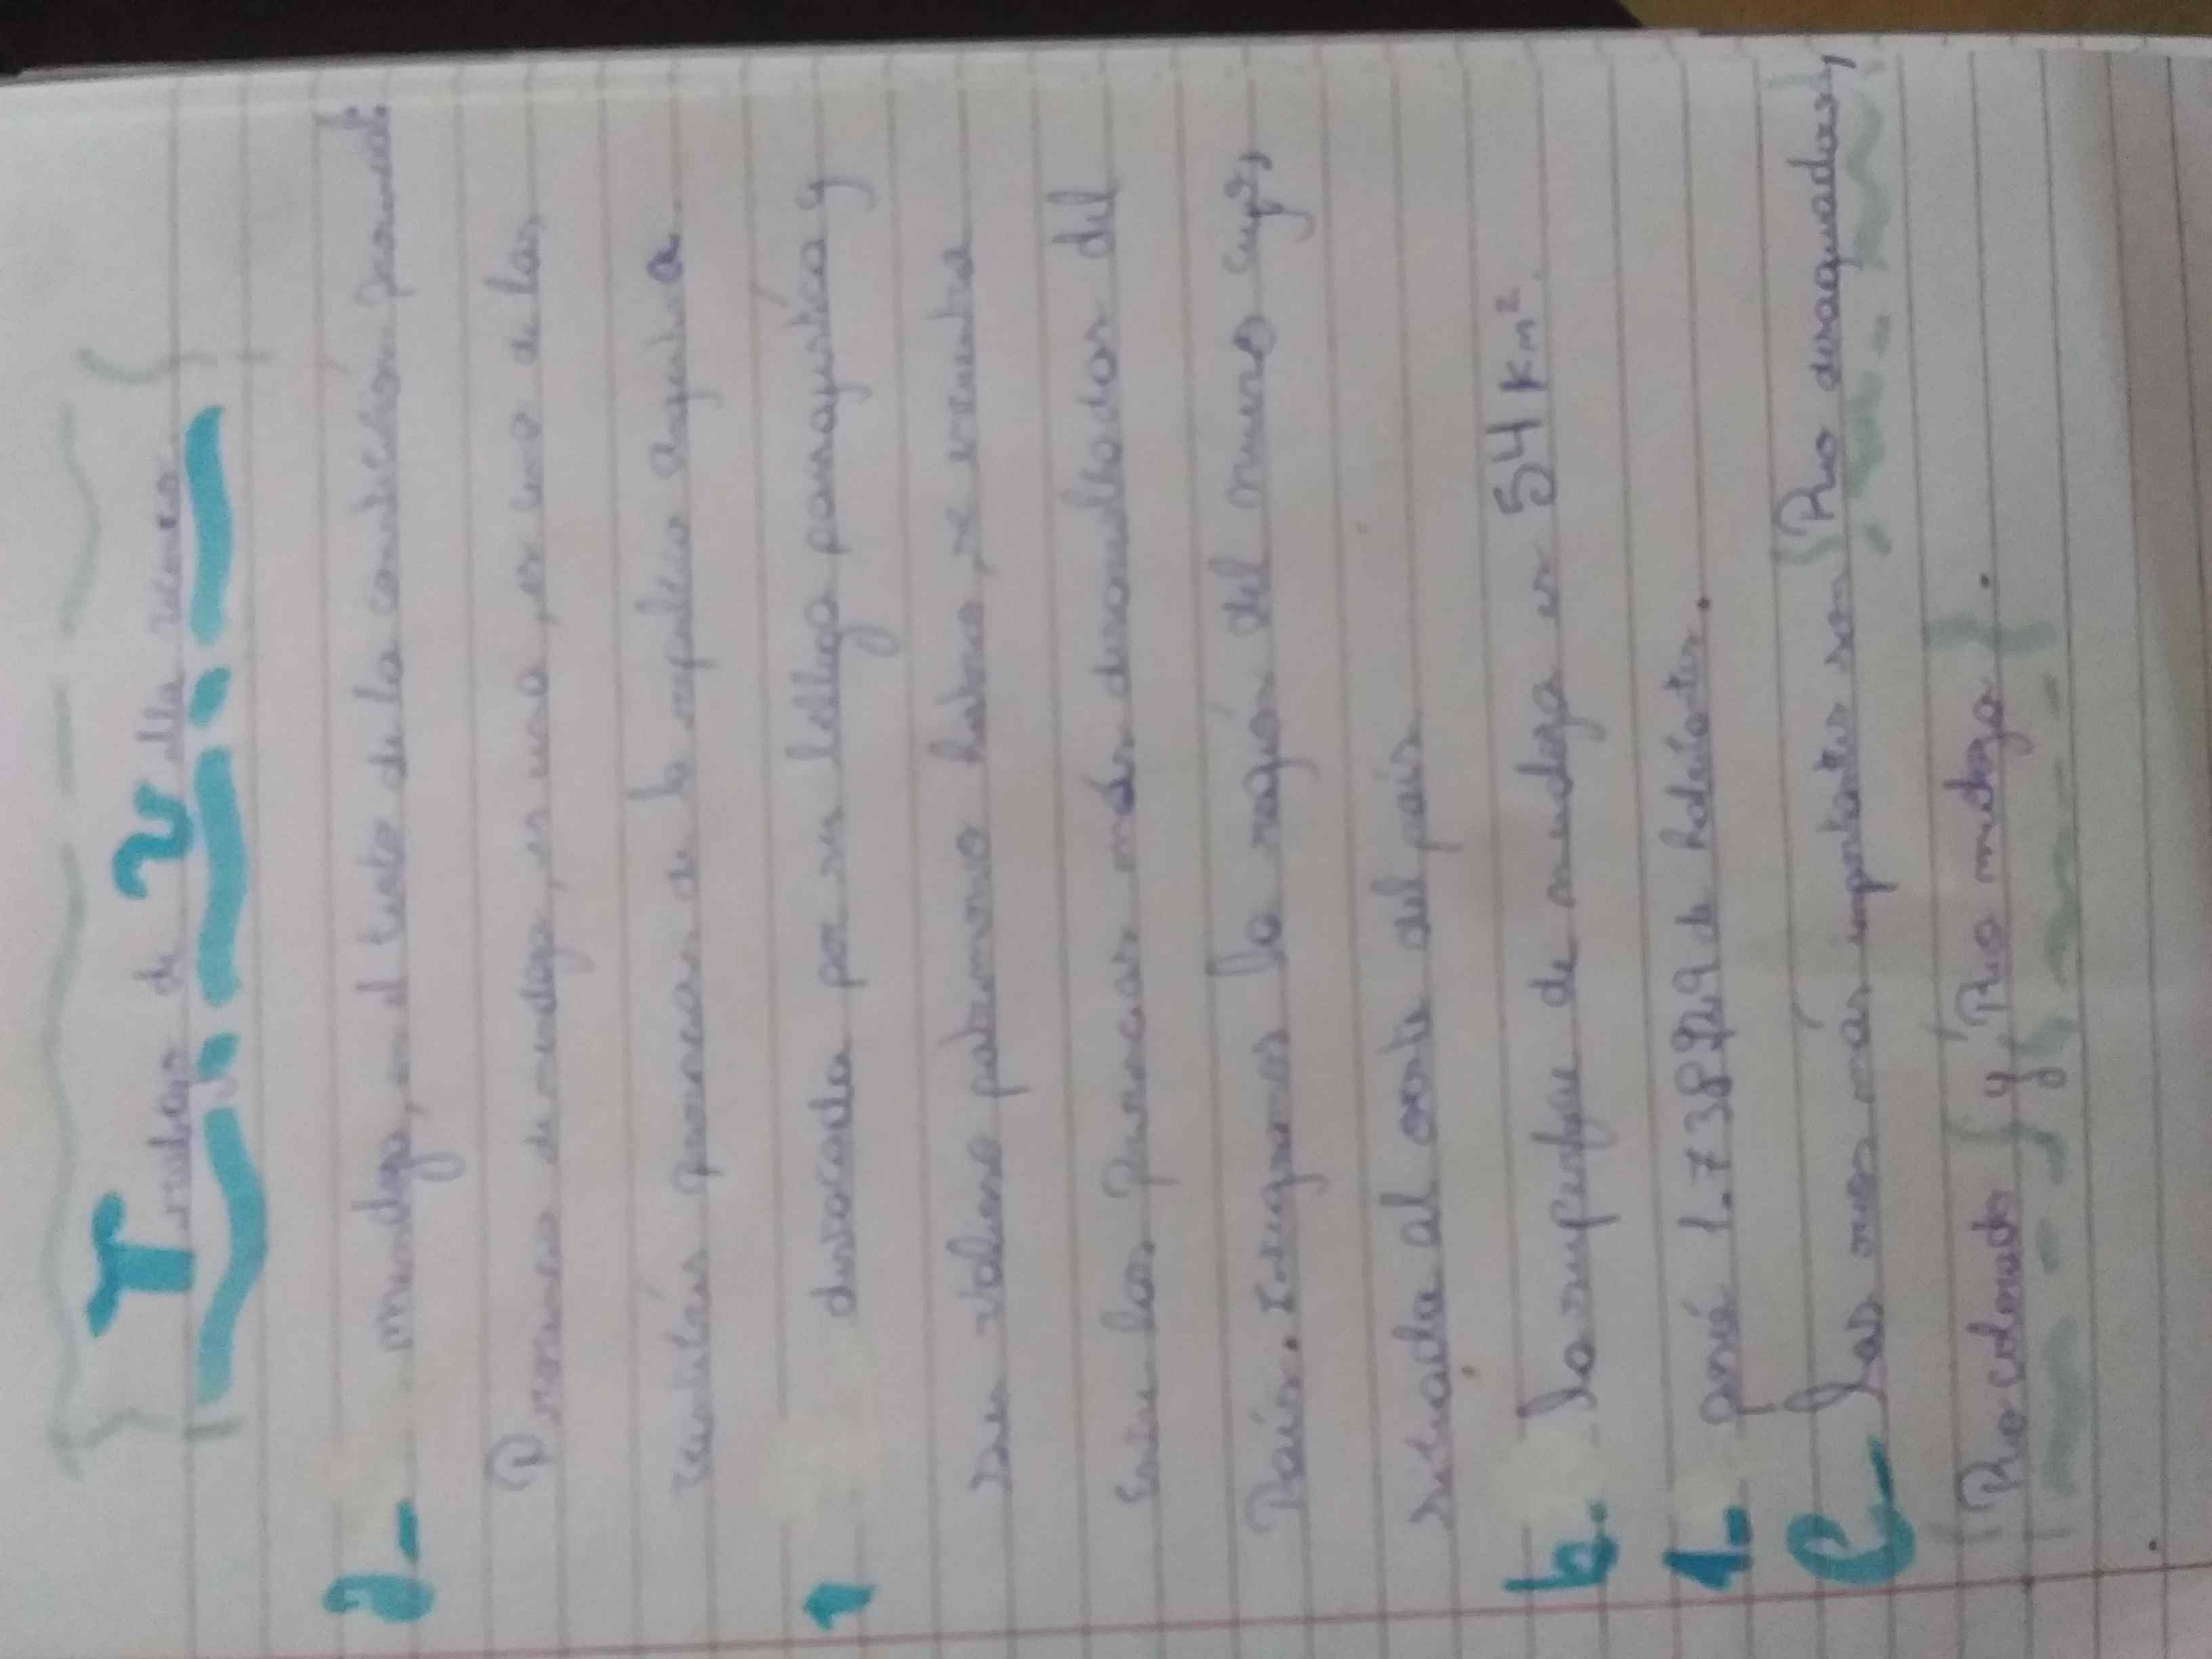 Trabajo de Valla
a- mendoza, en el texto de la constitución
Provincia de mendoza, es una, es una de las,
provincias de la república argentina.
1 destacada por su belleza paisajística y
su valioso patrimonio, se encuentra
Entre las provincias más desarrolladas del
País. Integramos la región del nuevo cuyo,
situada al oeste del país
b. la superficie de mendoza es 54 km².
1- posé 1.738929 de habitantes.
C- las ríos más importantes son {Río desaguadero,
Río colorado} y {Río mendoza}.